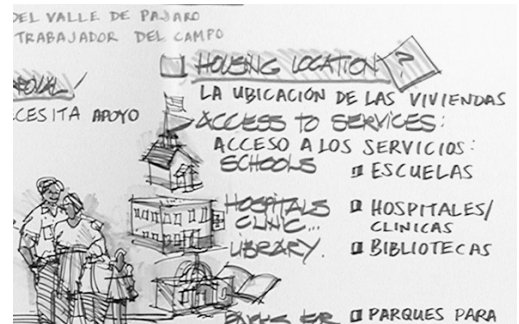 DEL VALLE DE PAJARO
TRABAJADOR DEL CAMPO
HOUSING LOCATION ?
NECESITA APOYO
LA UBICACIÓN DE LAS VIVIENDAS
ACCESS TO SERVICES:
ACCESO A LOS SERVICIOS:
SCHOOLS
ESCUELAS
HOSPITALS
HOSPITALES/
CLINIC...
CLINICAS
LIBRARY.
BIBLIOTECAS
PARQUES PARA